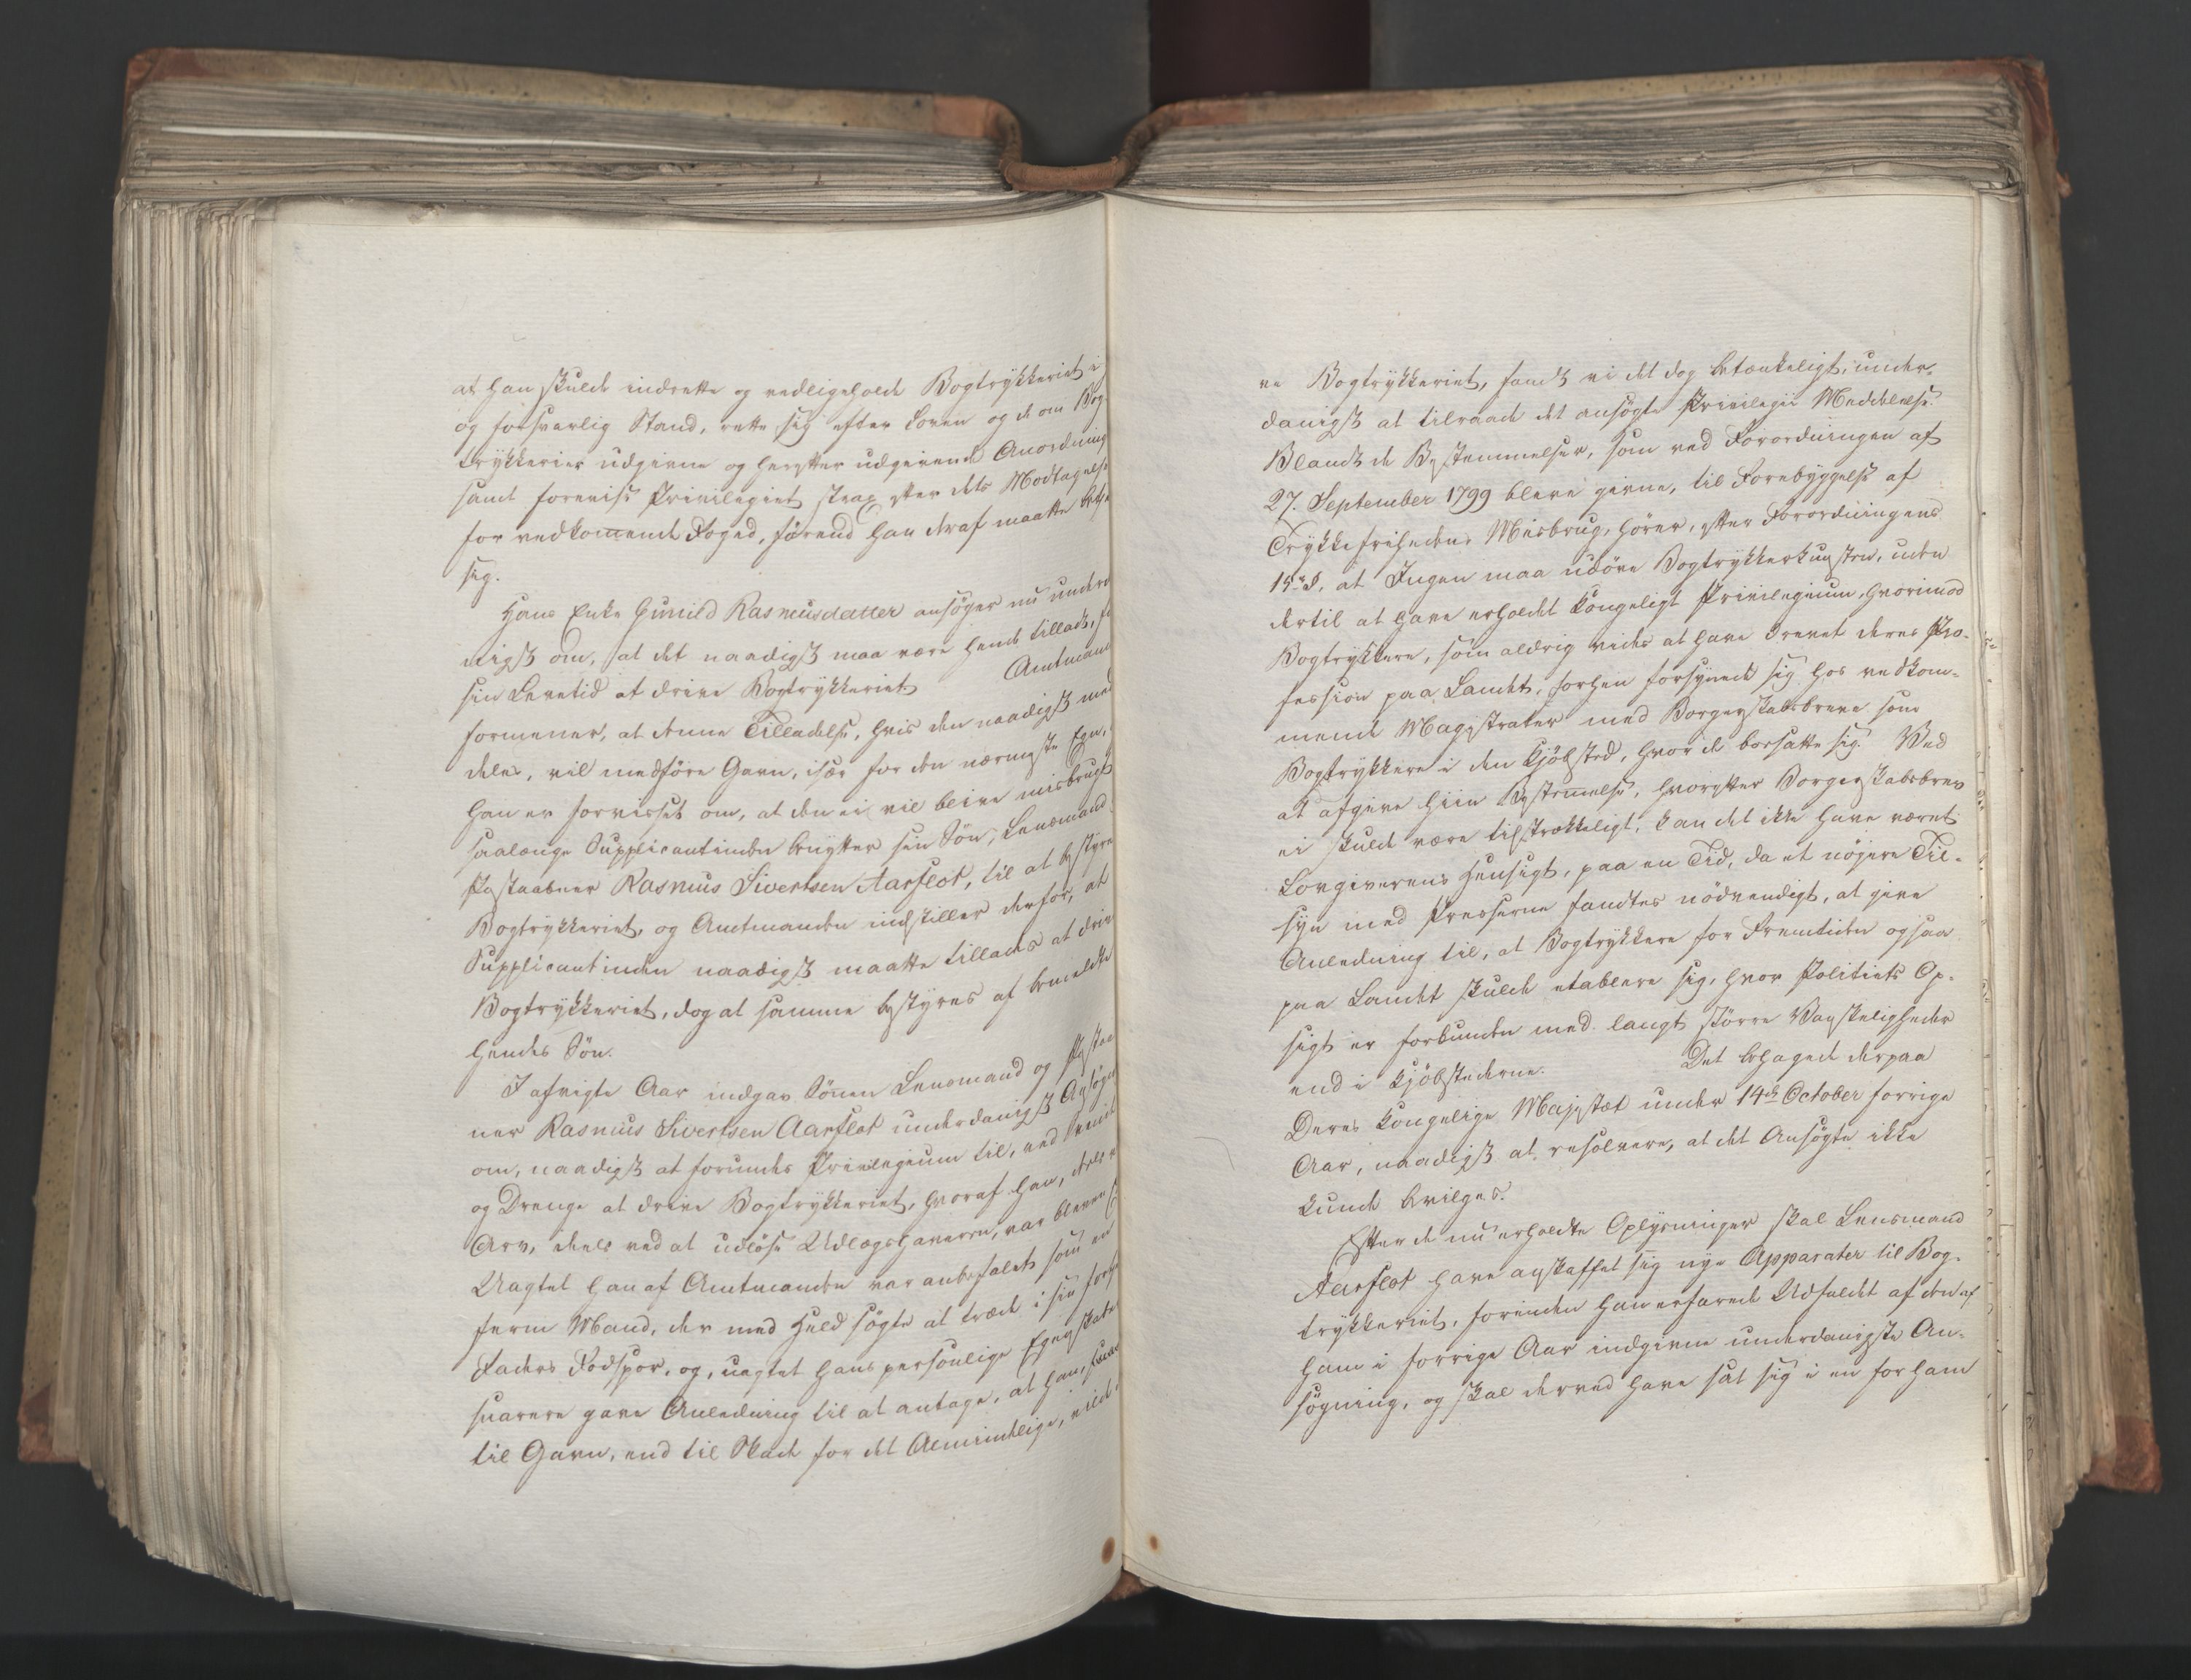 at han skulde indrette og vedligeholde Bogtrykkeriet i
og forsvarlig Stand, rette sig efter Loven og de om Bog-
trykkerier udgivne og herefter udgivende Anordning
samt forevise Privilegiet strax efter dets Modtagelse
for vedkommende Foged, førend han deraf maatte betje
sig.
Hans Enke Gunild Rasmusdatter ansøger nu underd
nigst om, at det naadigst maa være hende tilladt, fo
sin Levetid at drive Bogtrykkeriet. Amtmand
formener, at denne Tilladelse, hvis den naadigst med
deles, vil medføre Gavn, især for den nærmeste Egn,
han er forvisset om, at den ei vil blive misbrugt
saalænge Supplicantinden benytter sin Søn, Lensmand
Postaabner Rasmus Sivertsen Aarflot, til at bestyre
Bogtrykkeriet, og Amtmanden indstiller derfor, at
Supplicantinden naadigst maatte tillades at driv
Bogtrykkeriet, dog at samme bestyres af bemeldte
hendes Søn.
I afvigte Aar indgav Sønnen Lensmand og Postaa
ner Rasmus Sivertsen Aarflot underdanigst Ansøgn
om, naadigst at forundes Privilegium til, ved Svend
og Drenge at drive Bogtrykkeriet, hvoraf han, deels v
Arv, deels ved at udløse Udlægshaveren, var bleven
Uagtet han af Amtmanden var anbefalet som en
ferm Mand, der med Held søgte at træde i sin forh
Faders Fodspor, og, uagtet hans personlige Egenskaber
snarere gave Anledning til at antage, at han, snar
til Gavn, end til Skade for det Almindelige, vilde
ve Bogtrykkeriet, fandt vi det dog betænkeligt, under-
danigst at tilraade det ansøgte Privilegii Meddelelse.
Blandt de Bestemmelser, som ved Forordningen af
27. September 1799 bleve givne, til Forebyggelse af
Trykkefrihedens Misbrug, hører, efter Forordningens
15de §, at Ingen maa udøve Bogtrykkerkunsten, uden
dertil at have erholdet Kongeligt Privilegium, hvorimod
Bogtrykkere, som aldrig vides at have drevet deres Pro-
fession paa Landet, forhen forsynede sig hos vedkom-
mende Magistrater med Borgerskabsbreve som
Bogtrykkere i den Kjøbsted, hvor de bosatte sig. Ved
at afgive hiin Bestemmelse, hvorefter Borgerskabsbrev
ei skulde være tilstrækkeligt, kan det ikke have været
Lovgiverens Hensigt, paa en Tid, da et nøjere Til-
syn med Presserne fandtes nødvendigt, at give
Anledning til, at Bogtrykkere for Fremtiden ogsaa
paa Landet skulde etablere sig, hvor Politiets Op-
sigt er forbunden med langt større Vanskeligheder
end i Kjøbstederne. Det behagede derpaa
Deres Kongelige Majestæt under 14de October forrige
Aar, naadigst at resolvere, at det Ansøgte ikke
kunde bevilges.
Efter de nu erholdte Oplysninger skal Lensmand
Aarflot have anskaffet sig nye Apparater til Bog-
trykkeriet, forinden han erfarede Udfaldet af den af
ham i forrige Aar indgivne underdanigste An-
søgning, og skal derved have sat sig i en for ham